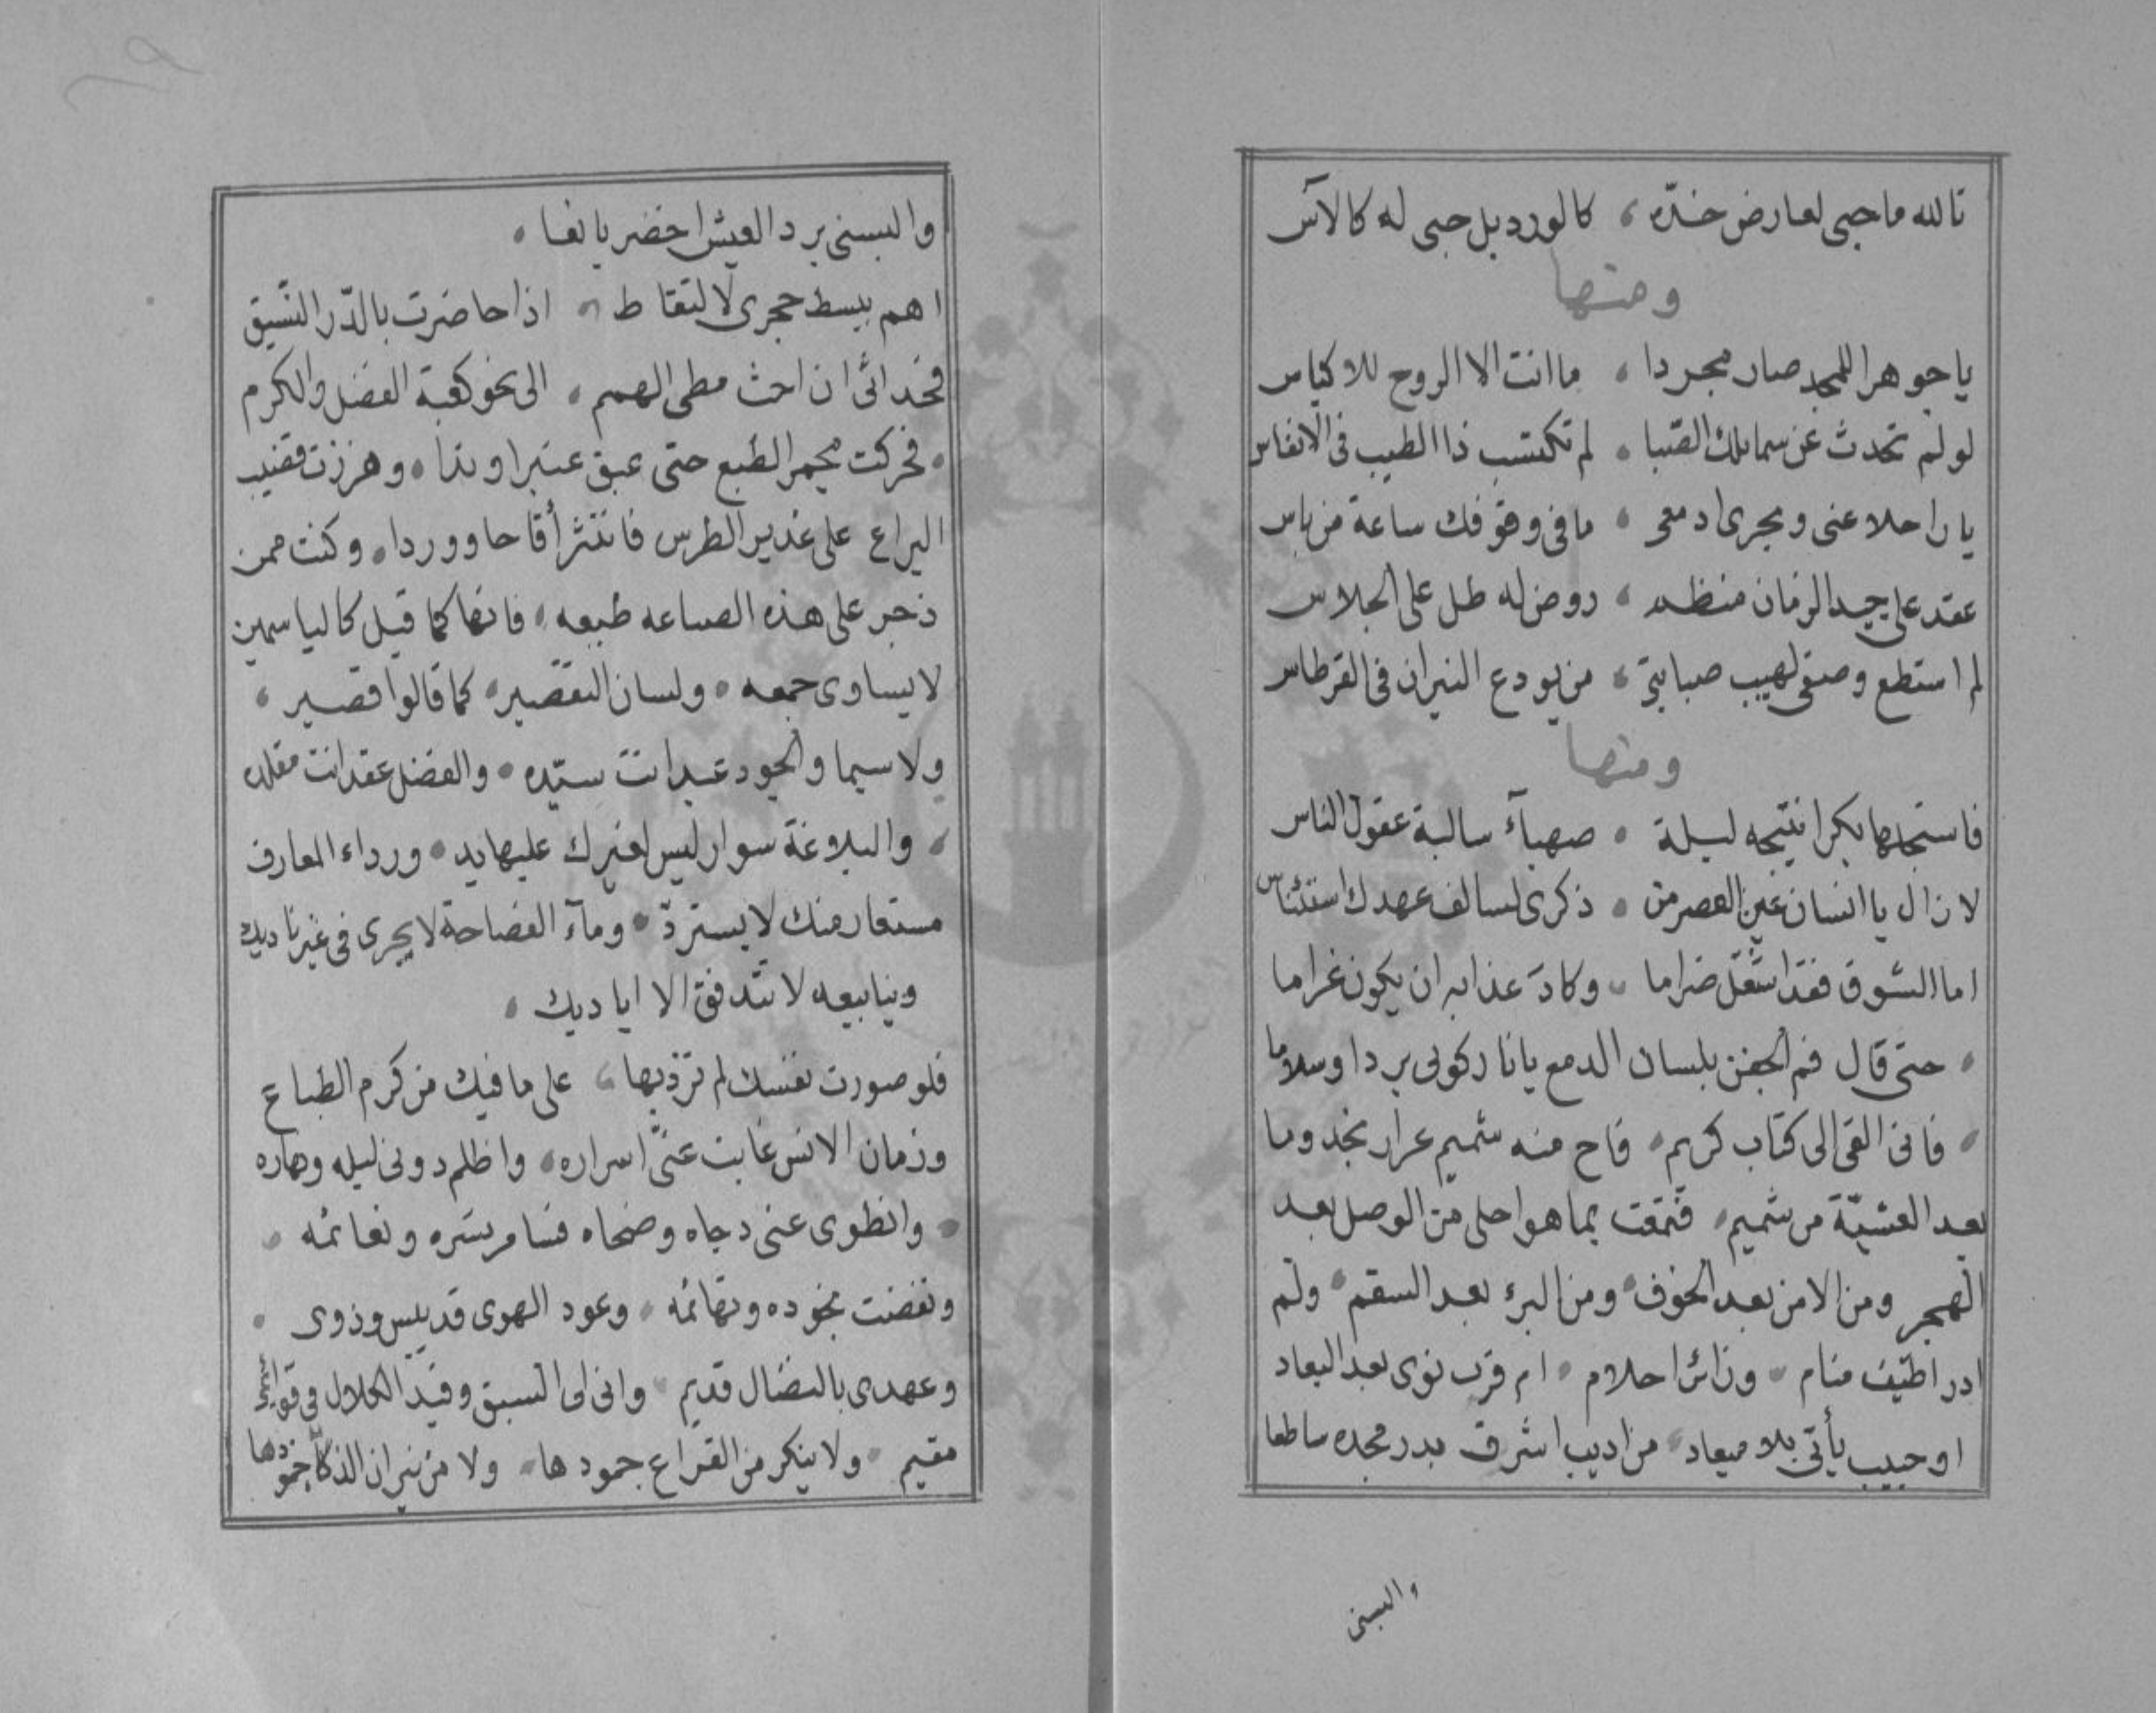 تالله ما حبى لعارض خدّه ، كالورد بل حبى له كالآس
ومنها
يا جوهرا للمجد صار مجردا ، ما انت الا الروح للاكياس
لو لم تحدث عن سمايلك الصّبا ، لم تكتسب ذا الطيب فى الانفاس
يا راحلا عنى ومجرى ادمعى ، ما فى وقوفك ساعة من باس
عقد على جيد الزمان منظم ، روض له طل على الجلاس
لم استطع وصفى لهيب صبابتى ، من يودع النيران فى القرطاس
ومنها
فاستجلها بكرا نتيجه ليلة ، صهبآء سالبة عقول الناس
لا زال يا انسان عين العصر من ، ذكرى لسالف عهدك استئناس
اما الشوق فقد اشتعل ضراما ، وكادَ عذابه ان يكون غراما
، حتى قال فم الجفن بلسان الدمع يا نار كونى بردا وسلاما
، فانى القى الى كتاب كريم ، فاح منه شميم عرار نجد وما
بعد العشيّة من شميم ، فتمتعت بما هو احلى من الوصل بعد
الهجر ومن الامن بعد الخوف ، ومن البرء بعد السقم ، ولم
ادر اطيف منام ، وزائر احلام ، ام قرب نوى بعد البعاد
او حبيب يأتى بلا ميعاد ، من اديب اشرق بدر مجده ساطعا
والبسنى
والبسنى برد العيش اخضر يانعا ،
اهم ببسط حجرى لالتقاط ، اذا حاضرت بالدّر النّسيق
فحدانى ان احث مطى الهمم ، الى نحو كعبة الفضل والكرم
، فحركت مجمر الطبع حتى عبق عنبرا وندا ، وهززت قضيب
اليراع على غدير الطرس فانتثر أقاحا ووردا ، وكنت ممن
زجر على هذه الصناعه طبعه ، فانها كما قيل كالياسمين
لا يساوى جمعه ، ولسان التقصير ، كما قالوا قصير ،
ولا سيما والجود عبد انت سيّده ، والفضل عقد انت مقلده
، والبلاغة سوار ليس لغيرك عليها يد ، ورداء المعارف
مستعار منك لا يستردّ ، ومآء الفصاحة لا يجرى فى غير ناديك
وينابيعه لا تتدفق الا اياديك ،
فلو صورت نفسك لم تزدها ، على ما فيك من كرم الطباع
وزمان الانس غابت عنّى اسراره ، واظلم دونى ليله ونهاره
، وانطوى عنى دجاه وضحاه ونعائمه ،
ونفضت نجوده وتهائمه ، وعود الهوى قد يبس وذوى ،
وعهدى بالنضال قديم ، وانى لى السبق وقيد الكلال فى
مقيم ، ولا ينكر من القراع جمودها ، ولا من نيران الذكآء خمودها